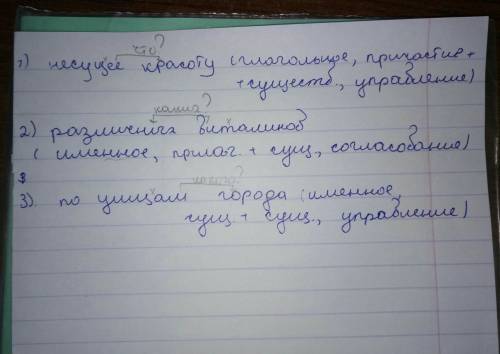 что?
1) несущее красоту (глагольное, причастие +
+ существ., управление)
каких?
2) различных витаминов
(именное, прилаг. + сущ., согласование)
3). по улицам города (именное,
сущ + сущ., управление)